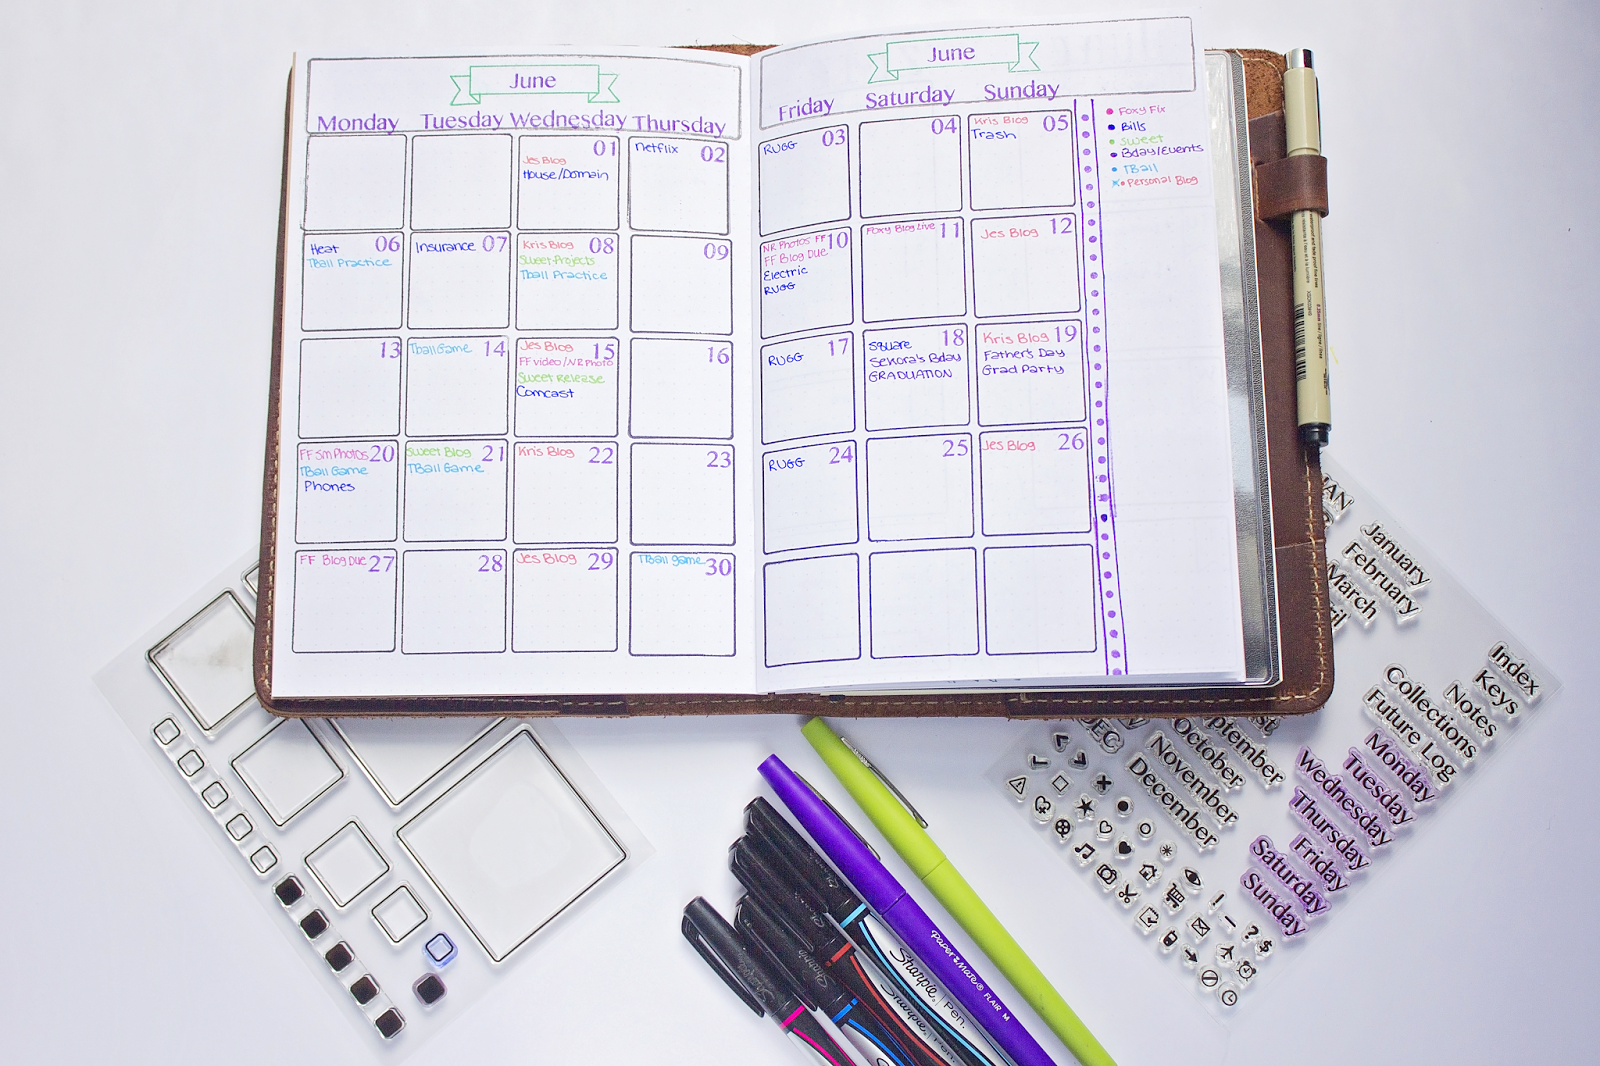 June
Monday Tuesday Wednesday Thursday
01
Jes Blog
House/Domain
Netflix 02
Heat 06
TBall Practice
Insurance 07
Kris Blog 08
Sweet Projects
TBall Practice
09
13
TballGame 14
Jes Blog 15
FF video/NR Photo
Sweet Release
Comcast
16
FF sm Photos 20
TBall Game
Phones
Sweet Blog 21
TBall Game
Kris Blog 22
23
FF Blog Due 27
28
Jes Blog 29
TBall game 30
June
Friday Saturday Sunday
RUGG 03
04
Kris Blog 05
Trash
NR Photos FF 10
FF Blog Due
Electric
RUGG
Foxy Blog Live 11
Jes Blog 12
RUGG 17
Square 18
Sekora's Bday
GRADUATION
Kris Blog 19
Father's Day
Grad Party
RUGG 24
25
Jes Blog 26
Foxy Fix
Bills
Sweet
Bday/Events
TBall
Personal Blog
JAN
January
February
March
Index
Keys
Notes
Collections
Future Log
Monday
Tuesday
Wednesday
Thursday
Friday
Saturday
Sunday
DEC
October
November
December
Paper Mate® FLAIR M
Sharpie. Pen.
Sharpie. Pen.